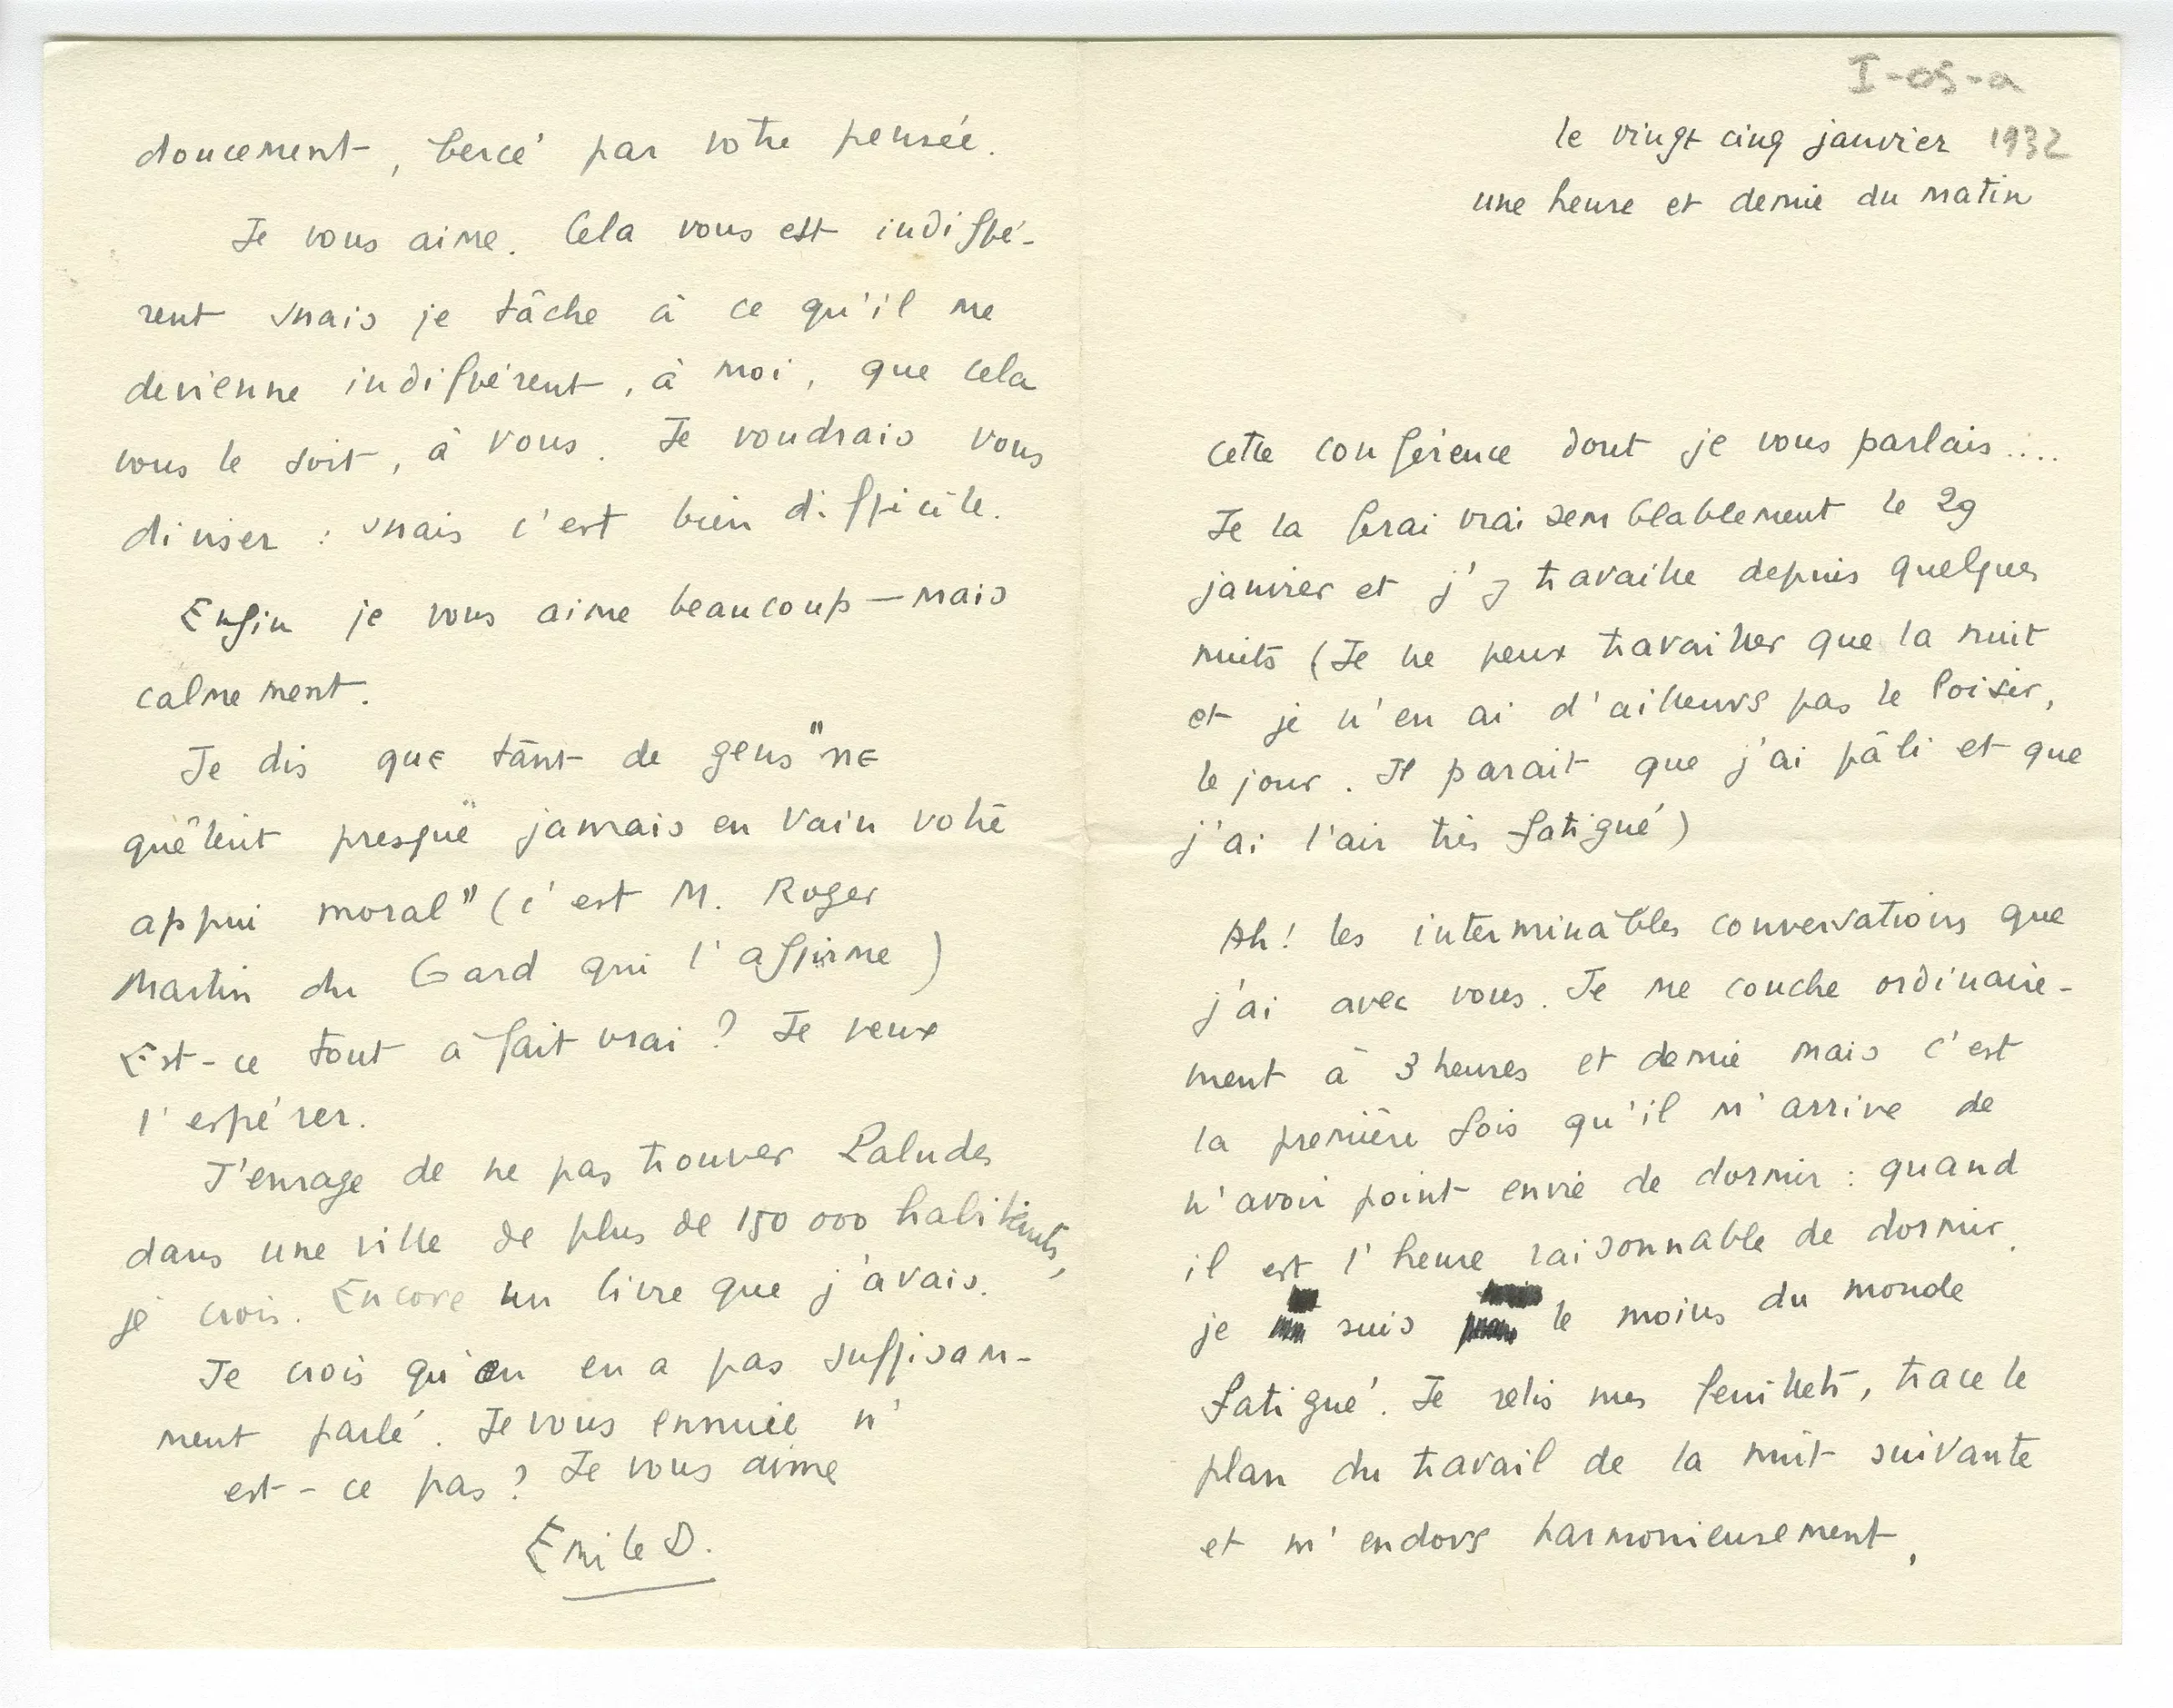 I-05-a
le vingt cinq janvier 1932
une heure et demie du matin
cette conférence dont je vous parlais....
Je la ferai vraisemblablement le 29
janvier et j'y travaille depuis quelques
nuits (Je ne peux travailler que la nuit
et je n'en ai d'ailleurs pas le loisir,
le jour. Il parait que j'ai pâli et que
j'ai l'air très fatigué)
Ah! les interminables conversations que
j'ai avec vous. Je me couche ordinaire-
ment à 3 heures et demie mais c'est
la première fois qu'il m'arrive de
n'avoir point envie de dormir : quand
il est l'heure raisonnable de dormir,
je suis le moins du monde
fatigué. Je relis mes feuillets, trace le
plan du travail de la nuit suivante
et m'endors harmonieusement,
doucement, bercé par votre pensée.
Je vous aime. Cela vous est indiffé-
rent mais je tâche à ce qu'il me
devienne indifférent, à moi, que cela
vous le soit, à vous. Je voudrais vous
diviser : mais c'est bien difficile.
Enfin je vous aime beaucoup — mais
calmement.
Je dis que tant de gens "ne
quêtent presque jamais en vain votre
appui moral" (c'est M. Roger
Martin du Gard qui l'affirme)
Est-ce tout à fait vrai ? Je veux
l'espérer.
J'enrage de ne pas trouver Paludes
dans une ville de plus de 150 000 habitants,
je crois. Encore un livre que j'avais.
Je crois qu'on en a pas suffisam-
ment parlé. Je vous ennuie n'
est-ce pas ? Je vous aime
Emile D.